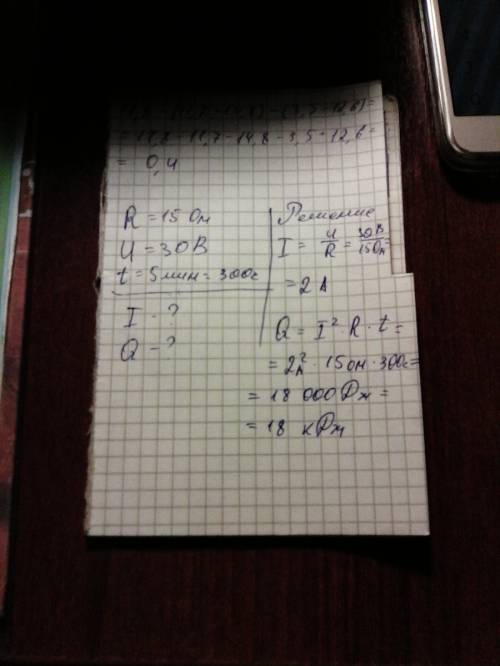 = 11,8 - 11,7 - 14,8 - 3,5 - 12,6 =
= 0,4
R = 15 Ом
U = 30 В
t = 5 мин = 300с
I - ?
Q - ?
Решение
I = U/R = 30В/15Ом =
= 2 А
Q = I² · R · t =
= 2А² · 15 Ом · 300с =
= 18 000 Дж =
= 18 кДж